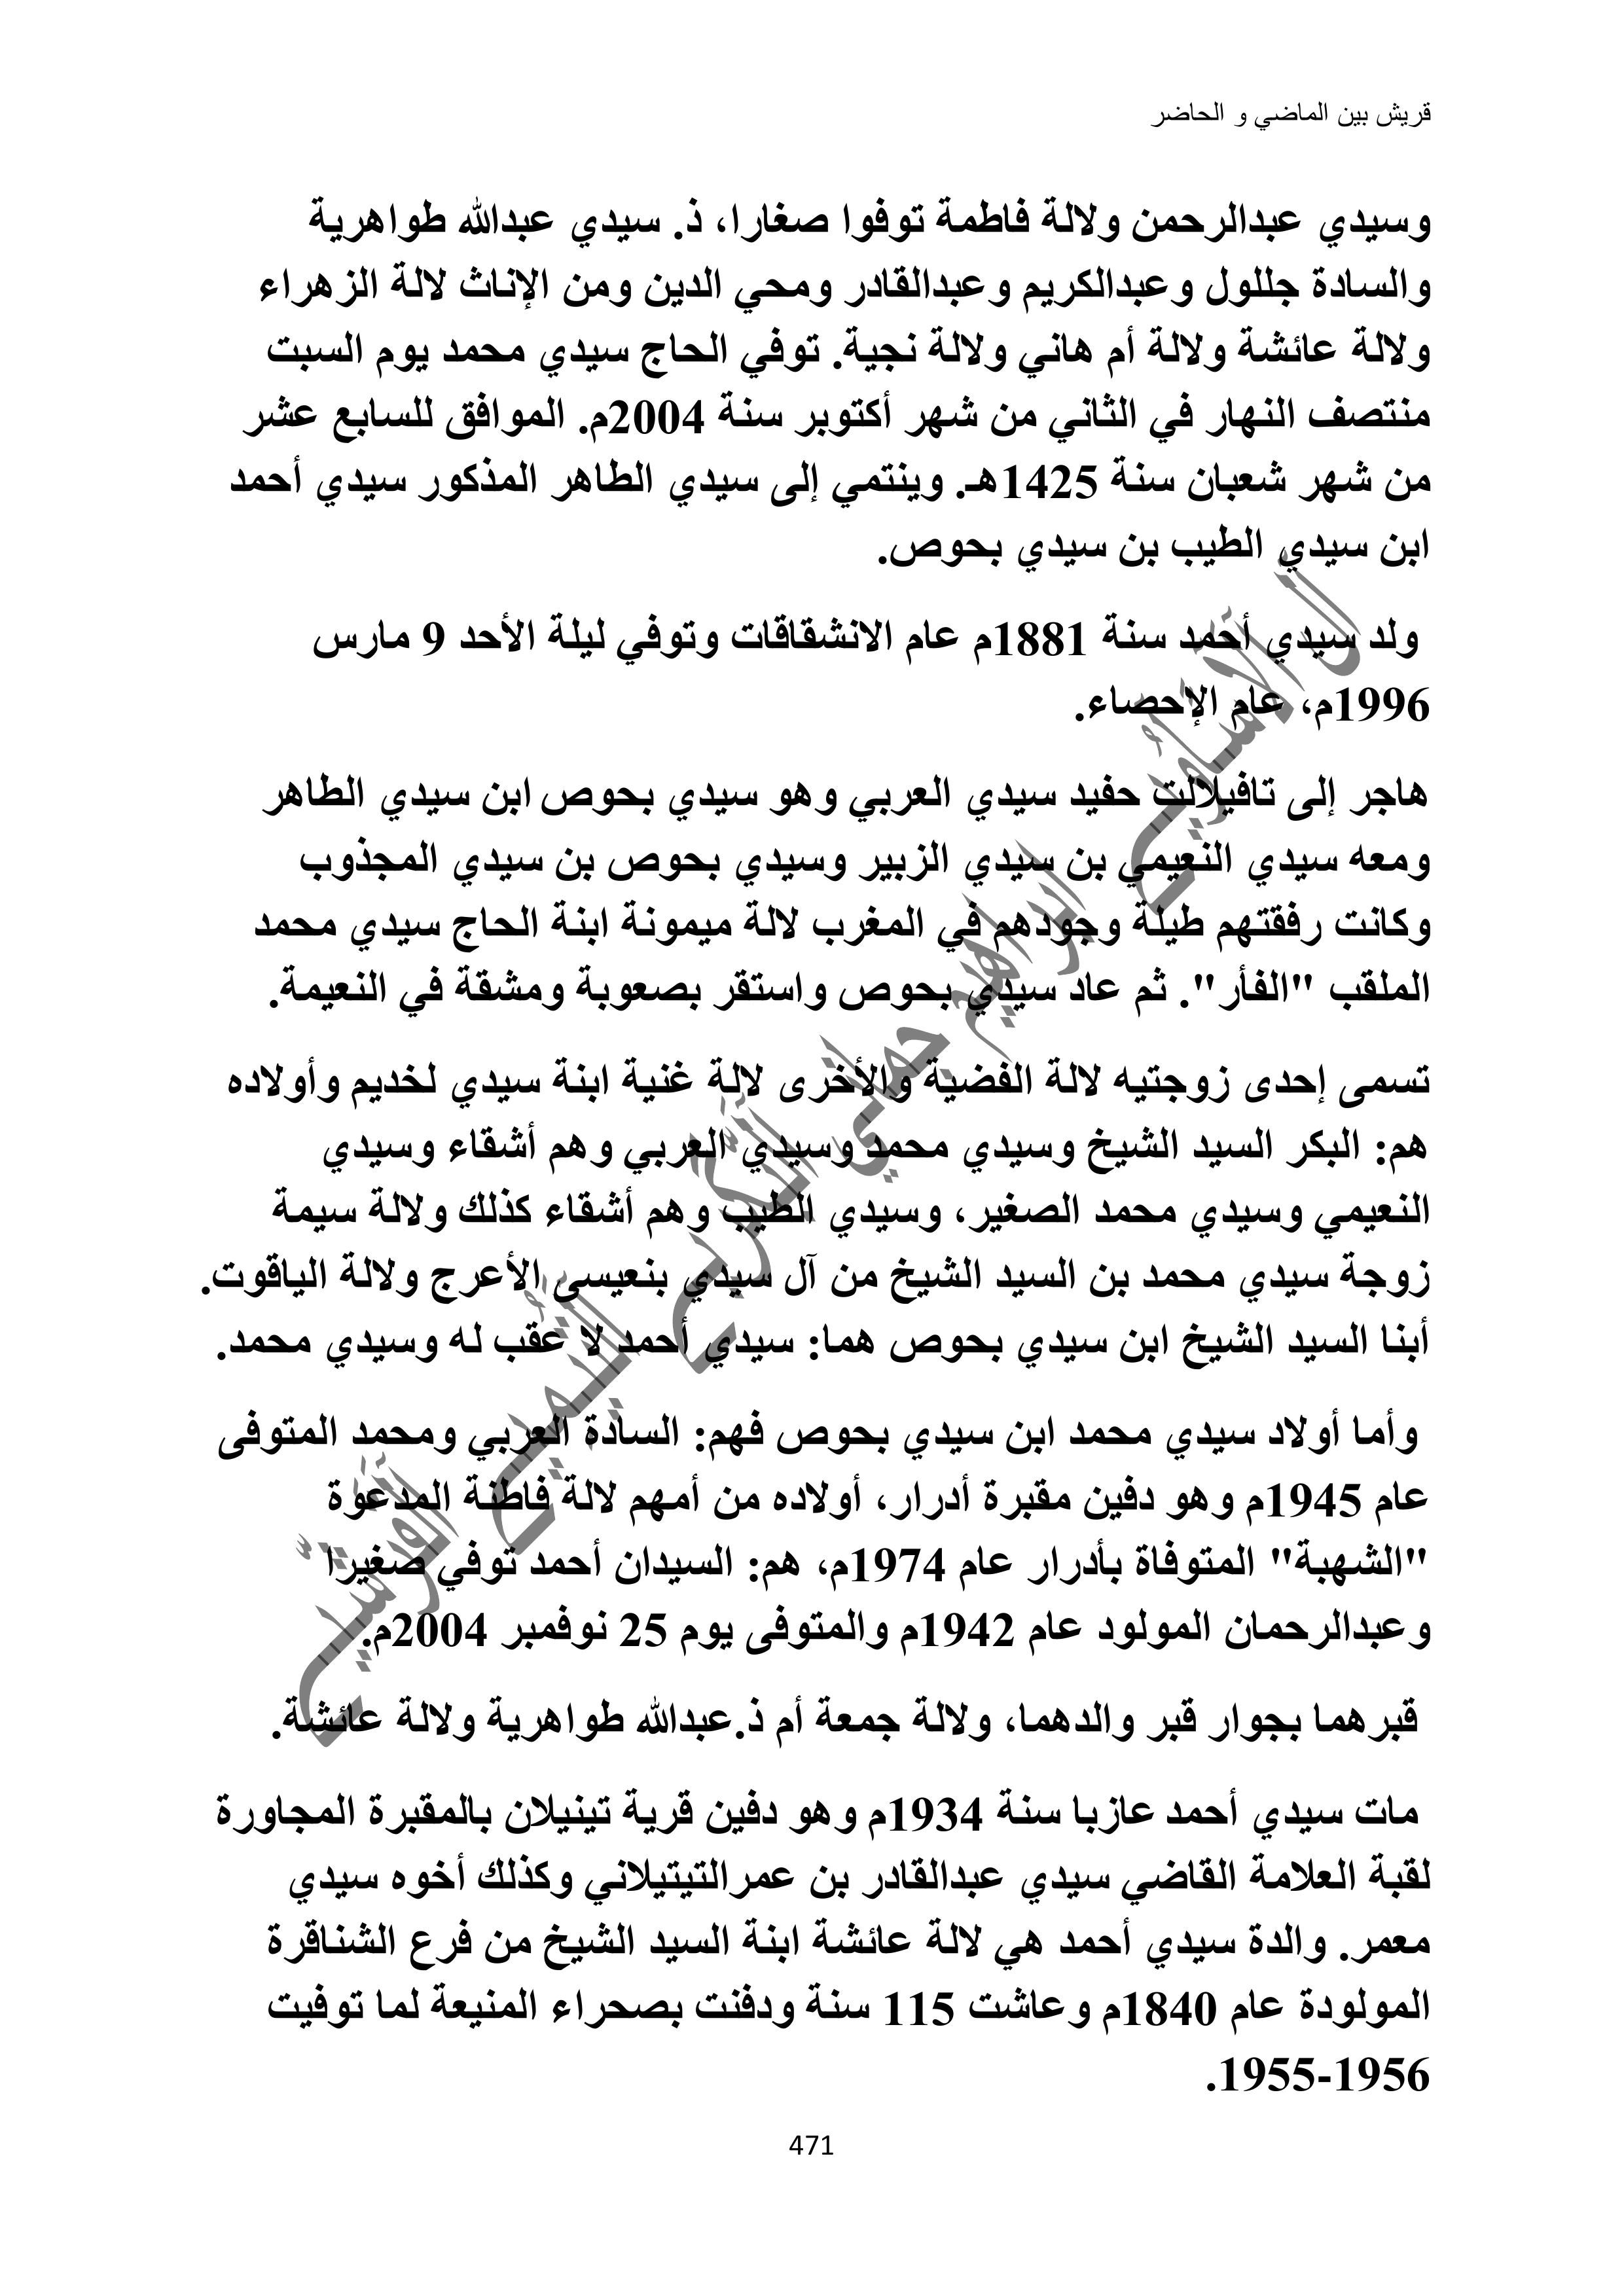 قريش بين الماضي و الحاضر
وسيدي عبدالرحمن ولالة فاطمة توفوا صغارا، ذ. سيدي عبدالله طواهرية
والسادة جللول وعبدالكريم وعبدالقادر ومحي الدين ومن الإناث لالة الزهراء
ولالة عائشة ولالة أم هاني ولالة نجية. توفي الحاج سيدي محمد يوم السبت
منتصف النهار في الثاني من شهر أكتوبر سنة 2004م. الموافق للسابع عشر
من شهر شعبان سنة 1425هـ. وينتمي إلى سيدي الطاهر المذكور سيدي أحمد
ابن سيدي الطيب بن سيدي بحوص.
ولد سيدي أحمد سنة 1881م عام الانشقاقات وتوفي ليلة الأحد 9 مارس
1996م، عام الإحصاء.
هاجر إلى تافيلالت حفيد سيدي العربي وهو سيدي بحوص ابن سيدي الطاهر
ومعه سيدي النعيمي بن سيدي الزبير وسيدي بحوص بن سيدي المجذوب
وكانت رفقتهم طيلة وجودهم في المغرب لالة ميمونة ابنة الحاج سيدي محمد
الملقب "الفأر". ثم عاد سيدي بحوص واستقر بصعوبة ومشقة في النعيمة.
تسمى إحدى زوجتيه لالة الفضية والأخرى لالة غنية ابنة سيدي لخديم وأولاده
هم: البكر السيد الشيخ وسيدي محمد وسيدي العربي وهم أشقاء وسيدي
النعيمي وسيدي محمد الصغير، وسيدي الطيب وهم أشقاء كذلك ولالة سيمة
زوجة سيدي محمد بن السيد الشيخ من آل سيدي بنعيسى الأعرج ولالة الياقوت.
أبنا السيد الشيخ ابن سيدي بحوص هما: سيدي أحمد لا عقب له وسيدي محمد.
وأما أولاد سيدي محمد ابن سيدي بحوص فهم: السادة العربي ومحمد المتوفى
عام 1945م وهو دفين مقبرة أدرار، أولاده من أمهم لالة فاطنة المدعوة
"الشهبة" المتوفاة بأدرار عام 1974م، هم: السيدان أحمد توفي صغيرا
وعبدالرحمان المولود عام 1942م والمتوفى يوم 25 نوفمبر 2004م.
قبرهما بجوار قبر والدهما، ولالة جمعة أم ذ.عبدالله طواهرية ولالة عائشة.
مات سيدي أحمد عازبا سنة 1934م وهو دفين قرية تينيلان بالمقبرة المجاورة
لقبة العلامة القاضي سيدي عبدالقادر بن عمرالتيتيلاني وكذلك أخوه سيدي
معمر. والدة سيدي أحمد هي لالة عائشة ابنة السيد الشيخ من فرع الشناقرة
المولودة عام 1840م وعاشت 115 سنة ودفنت بصحراء المنيعة لما توفيت
1955-1956.
471